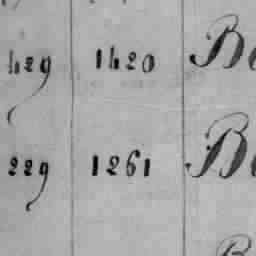 429 1420 B
229 1261 B
B